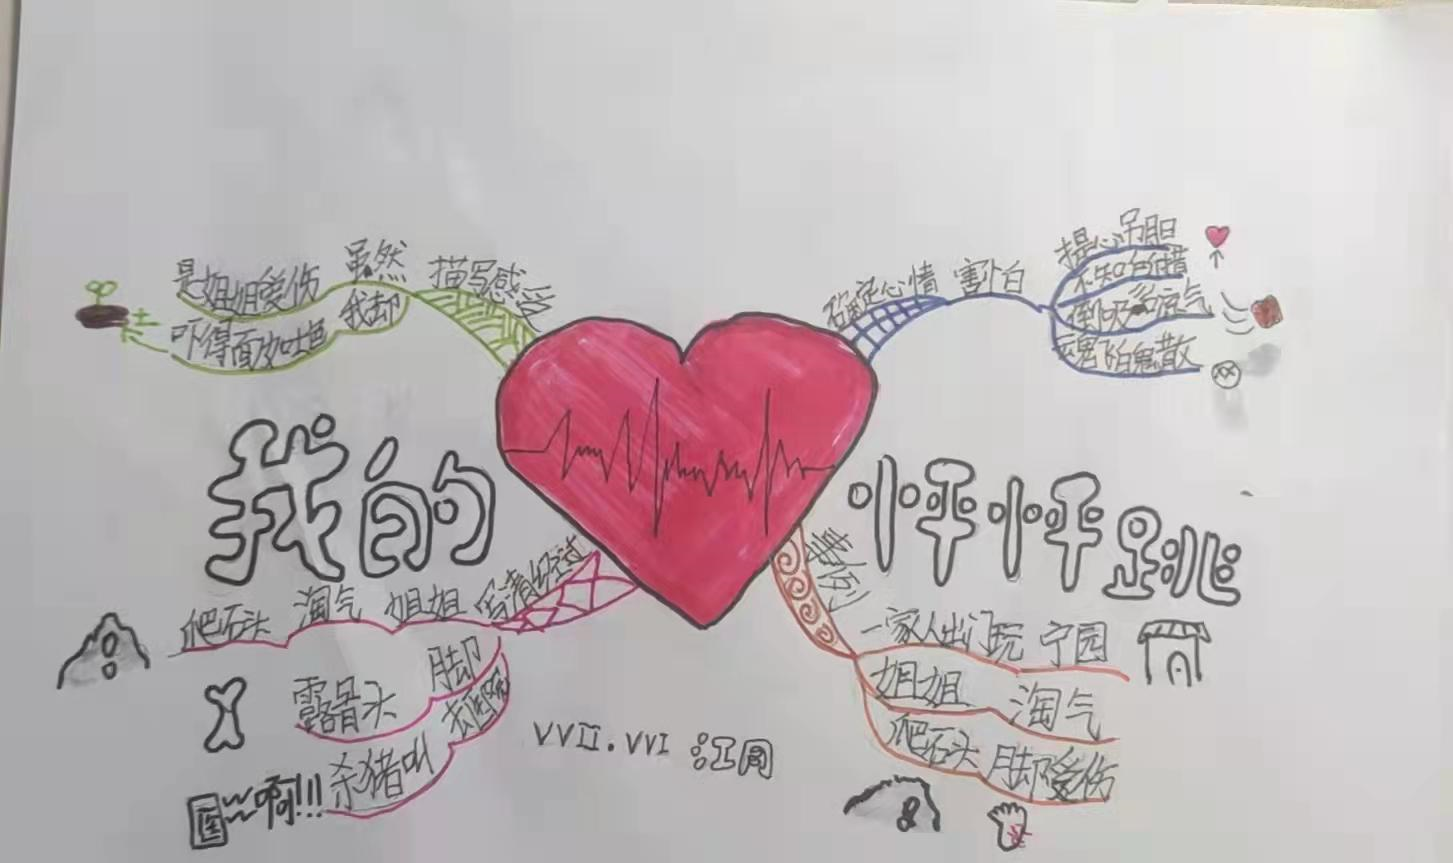 我的
怦怦跳
确定心情
害怕
提心吊胆
不知所措
倒吸一口凉气
魂飞魄散
事例
一家人出门玩
宁园
姐姐
淘气
爬石头
脚受伤
写清经过
姐姐
淘气
爬石头
脚
露骨头
去医院
杀猪叫
医
啊!!!
描写感受
虽然
是姐姐受伤
我却
吓得面如土色
土
VVII.VVI